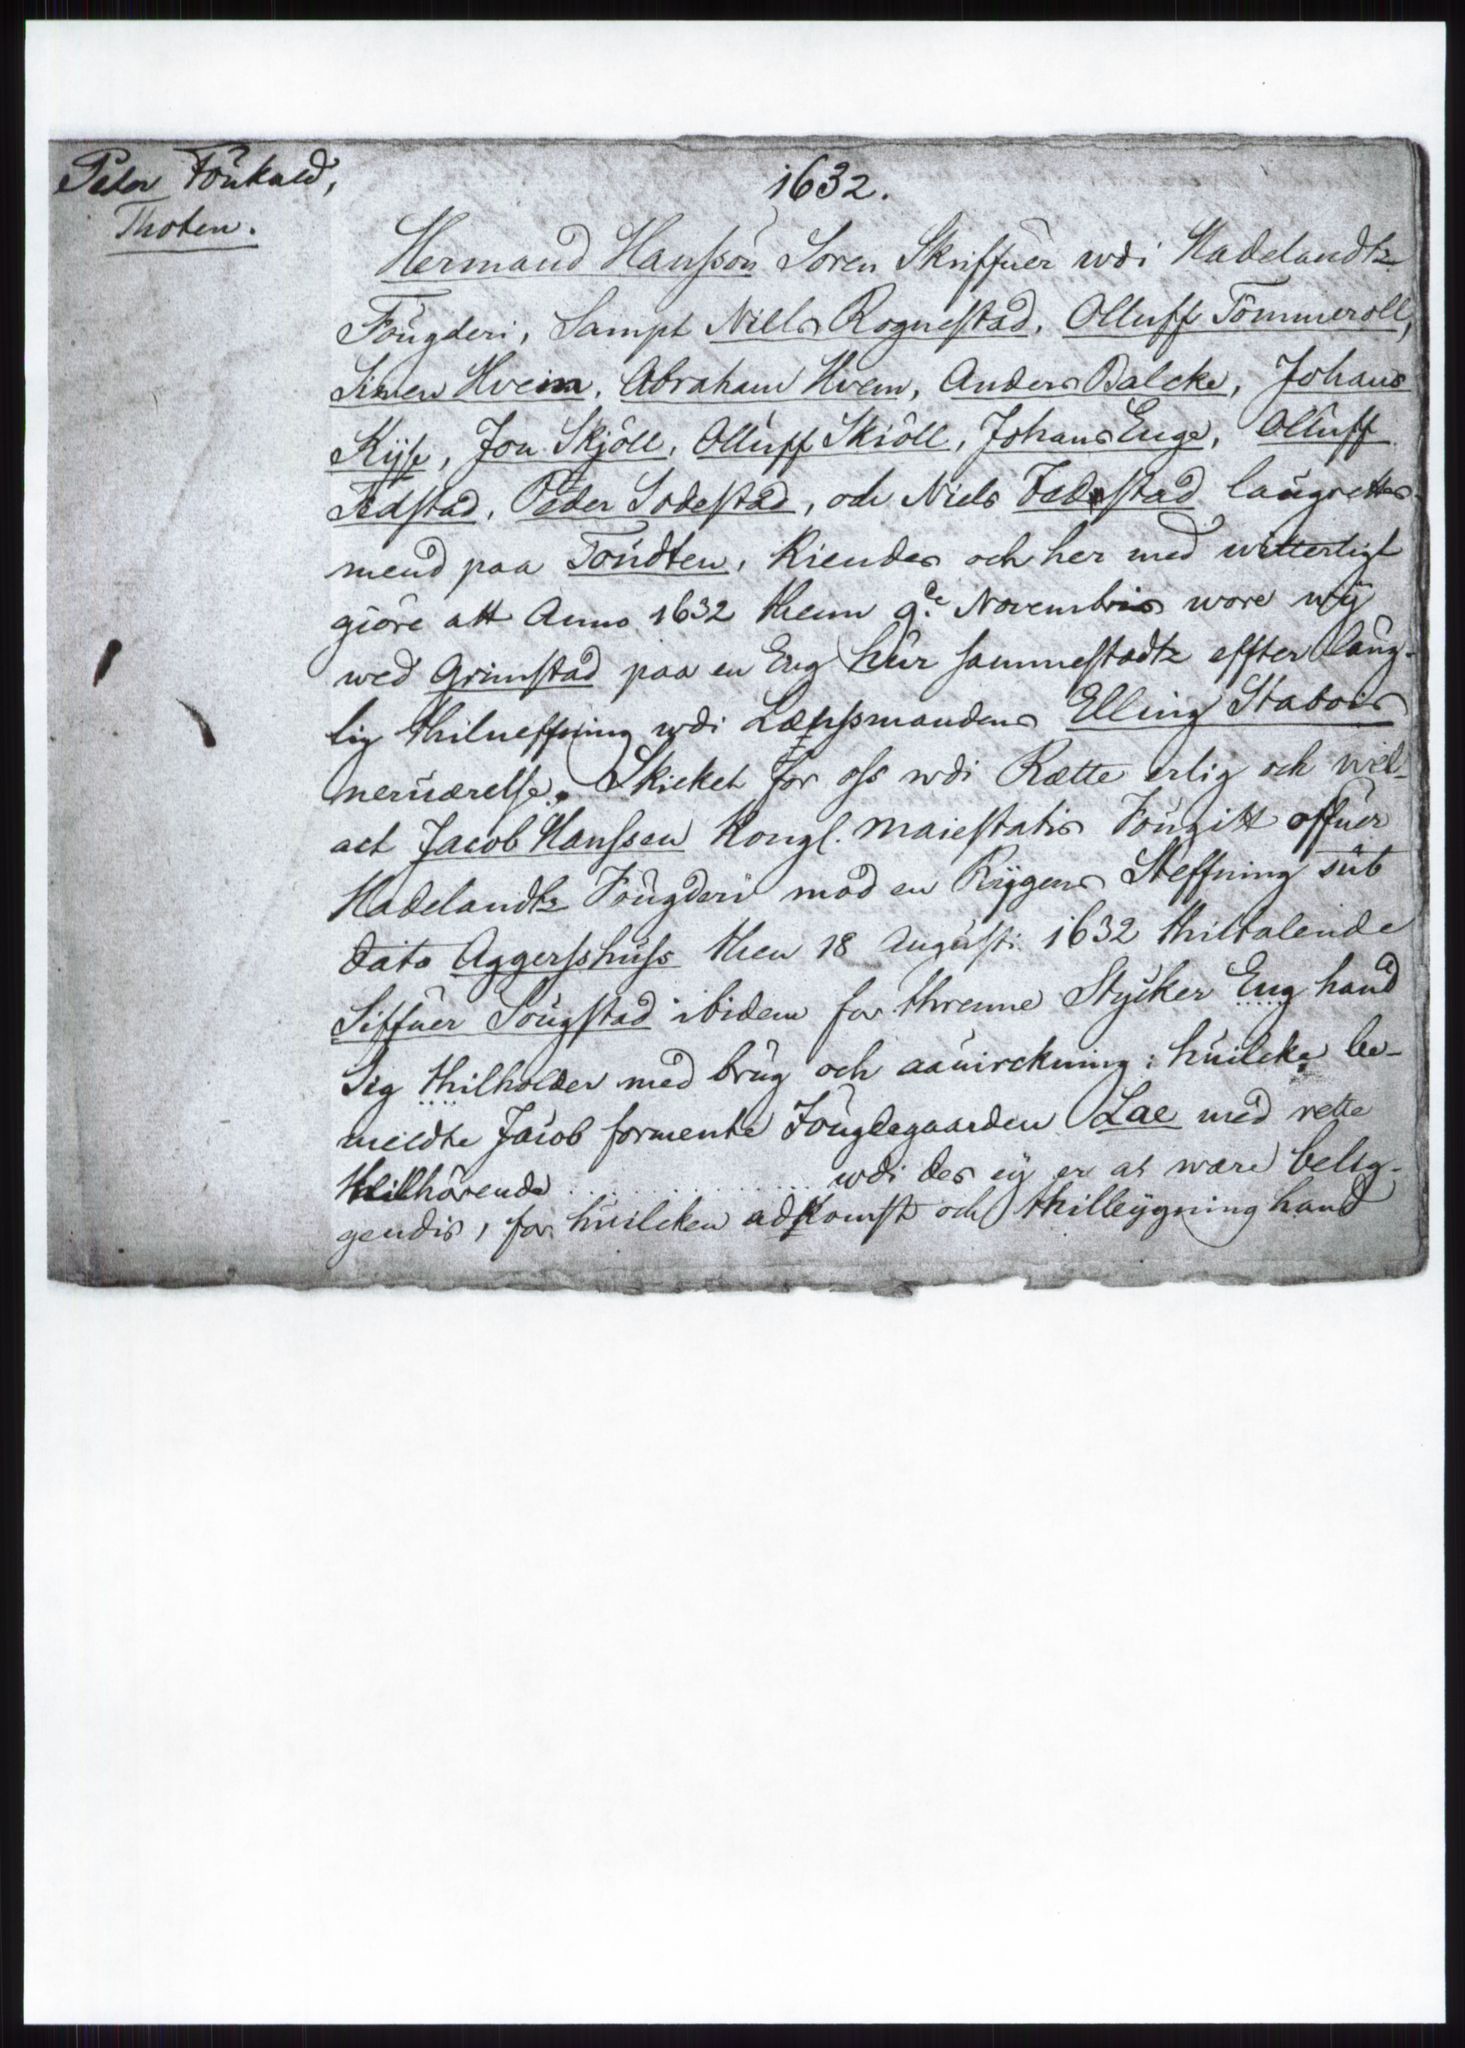 Peter Fóúkald,
Thoten.
1632.
Hermand Hanssön Soren Skriffuer wdi Hadelandtz
Fougderi, Sampt Niels Rognestad, Olluff Tömmeroll,
Simen Hveim, Abraham Hvem, Anders Balcke, Johans
Kyse, Jon Skjöll, Olluff Skiöll, Johans Enge, Olluff
Fedstad, Peder Sodestad, och Niels Fedestad laugrettes-
mend paa Toudten, Kiendes och her med witterligt
giöre att Anno 1632 thenn 9de Novembris wore wÿ
wed Grimstad paa en Eng hur sammestadtz effter laug-
lig thilneffning wdi Lænssmandens Elling Stabois
neruærelse. Skicket for oss wdi Rætte erlig och wel-
act Jacob Hanssen Kongl. Maiestatis Fougitt offuer
Hadelandtz Fougderi mod en Rygens Steffning sub
dato Aggersshuss then 18 Augusti 1632 thiltalende
Siffuer Sougstad ibidem for threnne Stycker Eng hand
Sig thilholder med brug och aauirckning; huilcke be-
meldte Jacob formente Fougdegaarden Lae med rette
thilhörende .......... wdi des eÿ er at wære belig-
gendis, for huilcken adkomst och thilleygning hand